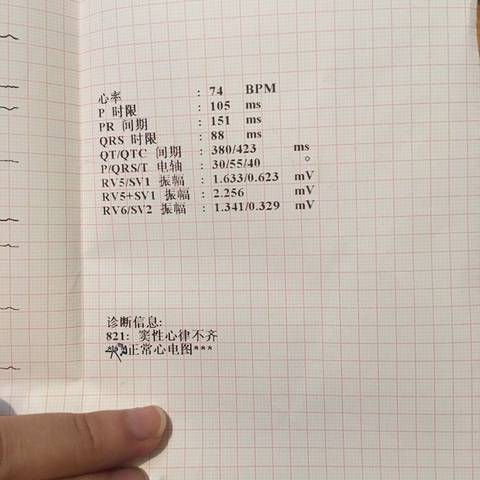 心率 : 74 BPM
P 时限 : 105 ms
PR 间期 : 151 ms
QRS 时限 : 88 ms
QT/QTC 间期 : 380/423 ms
P/QRS/T 电轴 : 30/55/40 °
RV5/SV1 振幅 : 1.633/0.623 mV
RV5+SV1 振幅 : 2.256 mV
RV6/SV2 振幅 : 1.341/0.329 mV
诊断信息:
821: 窦性心律不齐
正常心电图***